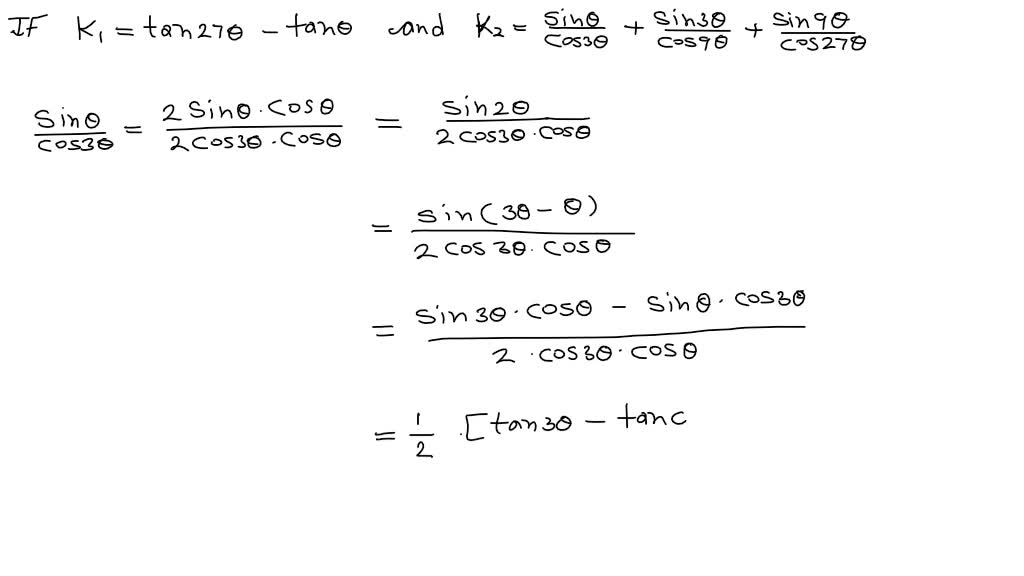 IF K₁ = tan27θ - tanθ and K₂ = sinθ/cos3θ + sin3θ/cos9θ + sin9θ/cos27θ
sinθ/cos3θ = 2 sinθ · cosθ / 2cos3θ · cosθ = sin2θ / 2cos3θ · cosθ
= sin(3θ - θ) / 2 cos3θ · cosθ
= sin3θ · cosθ - sinθ · cos3θ / 2 · cos3θ · cosθ
= 1/2 · [tan3θ - tanc